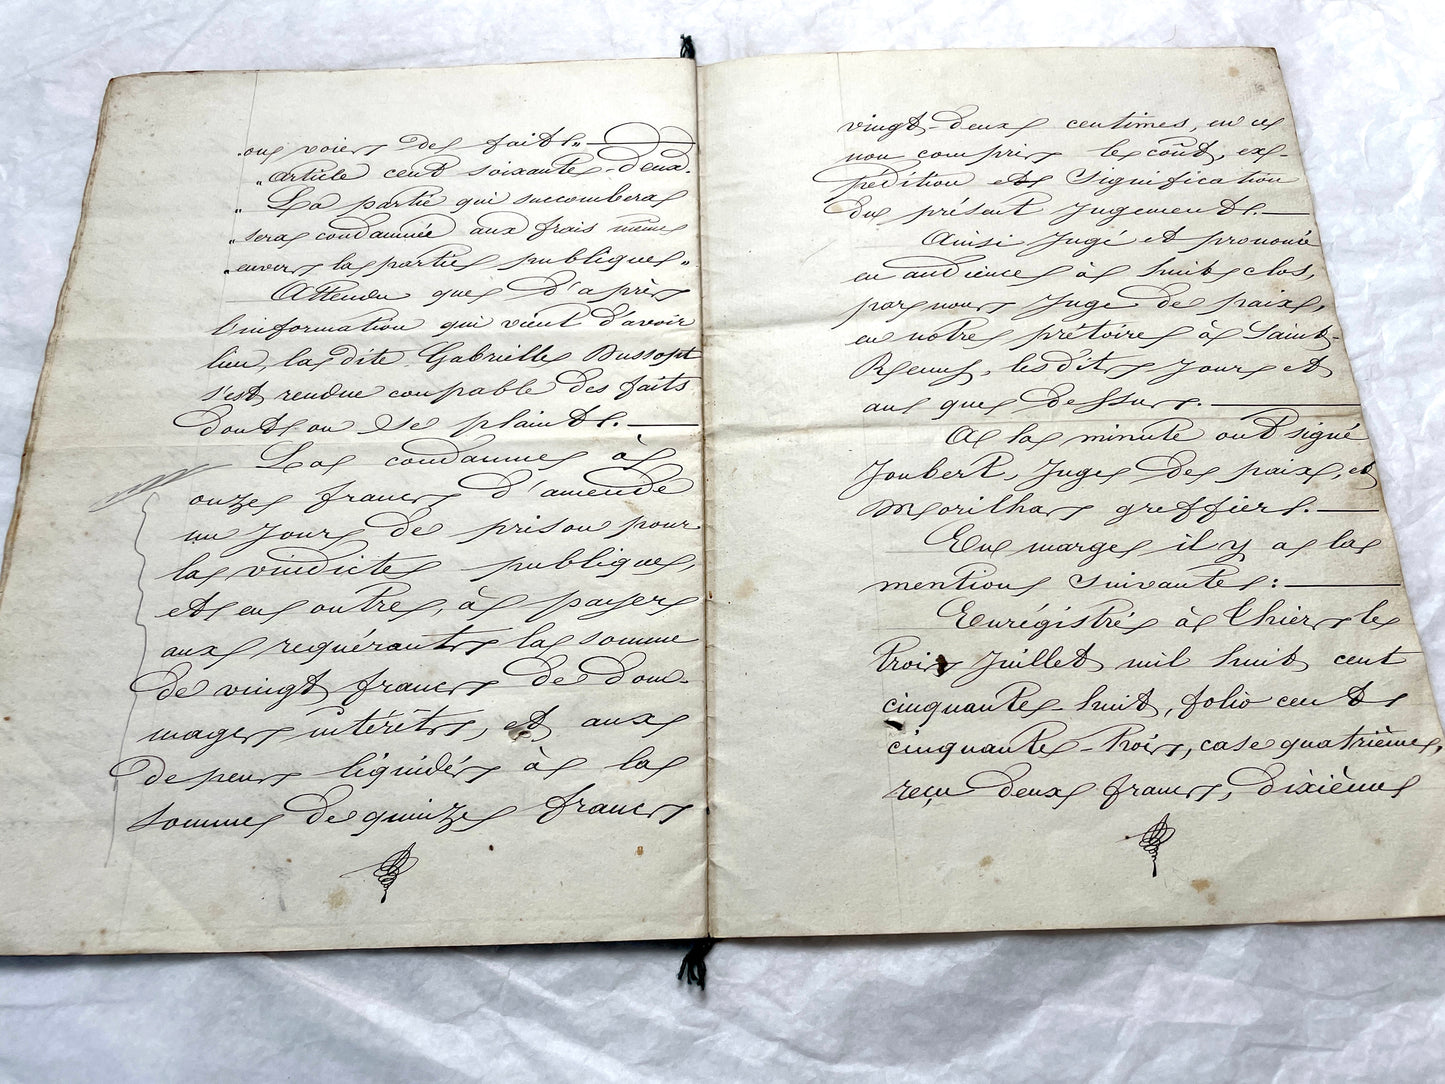 ou voies de faits. »
« Article cent soixante-deux.
« La partie qui succombera
« sera condamnée aux frais même
« envers la partie publique »
Attendu que d'après
l'information qui vient d'avoir
lieu, la dite Gabrielle Dussopt
s'est rendue coupable des faits
dont on se plaint.
La condamne à
onze francs d'amende
un jour de prison pour
la vindicte publique,
et en outre, à payer
aux requérants la somme
de vingt francs de dom-
mages intérêts, et aux
dépens liquidés à la
somme de quinze francs
vingt-deux centimes, en ce
non compris le coût, ex-
pédition et signification
du présent jugement.
Ainsi jugé et prononcé
en audience à huit clos,
par nous Juge de paix,
en notre prétoire à Saint-
Remy, les dits jour et
an que dessus.
A la minute ont signé
Joubert, Juge de paix, et
Morilhat greffier.
En marge il y a la
mention suivante :
Enrégistré à Thiers le
trois Juillet mil huit cent
cinquante-huit, folio cent
cinquante-trois, case quatrième,
reçu deux francs, dixième